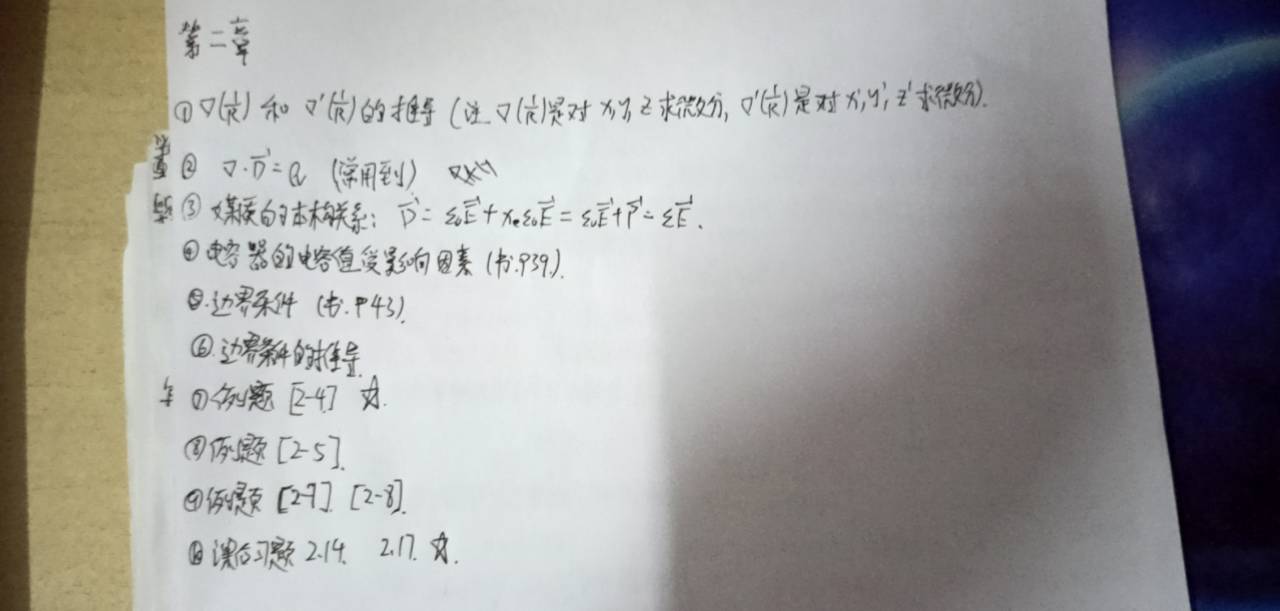 第二章
① ∇(1/R) 和 ∇'(1/R) 的推导 (注 ∇(1/R)是对 x, y, z 求微分, ∇'(1/R) 是对 x', y', z' 求微分).
② ∇·D⃗ = ρ (常用到)
③ 媒质的本构关系: D⃗ = ε₀E⃗ + χₑε₀E⃗ = ε₀E⃗ + P⃗ = εE⃗.
④ 电容器的电容值受影响因素 (书.P39.).
⑤. 边界条件 (书. P43).
⑥. 边界条件的推导.
⑦ 例题 [2-4] ☆.
⑧ 例题 [2-5].
⑨ 例题 [2-7]. [2-8].
⑩ 课后习题 2.14. 2.17. ☆.